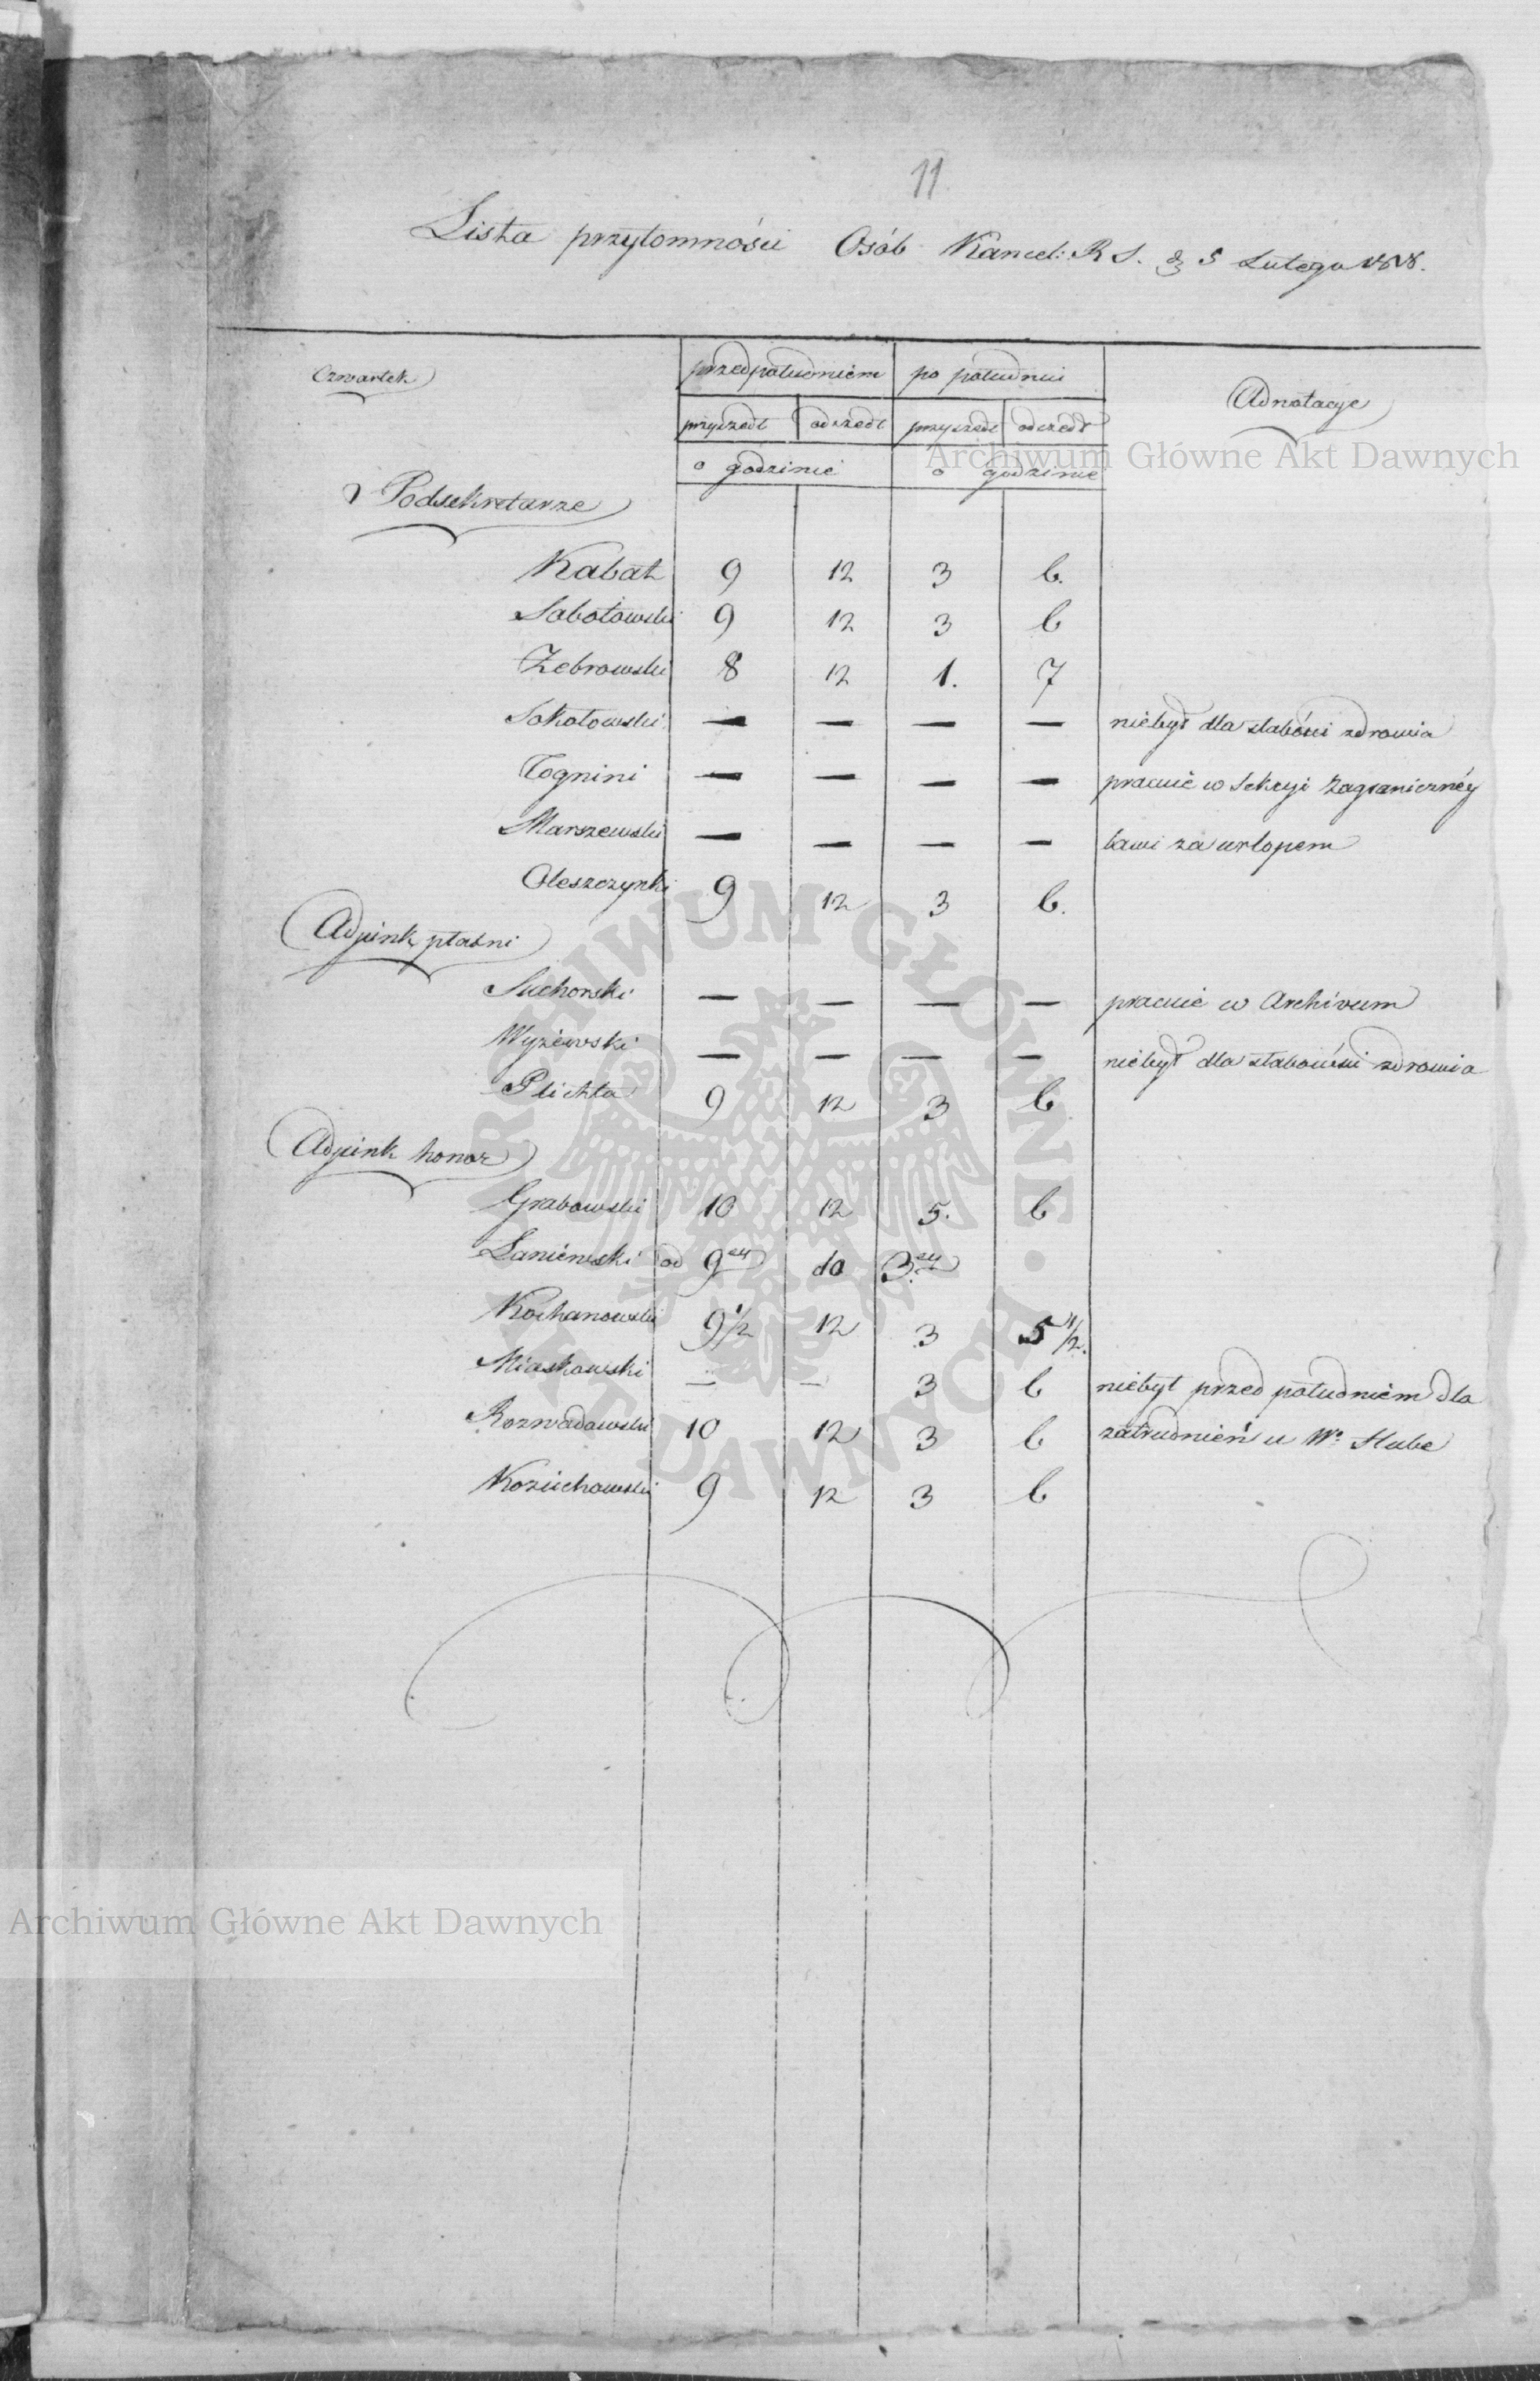 11
Lista przytomności Osób Kancel: R S. d 5 Lutego 1818.
Czwartek
przed południem po południu
Adnotacje
przyszedł odszedł przyszedł odszedł
o godzinie o godzinie
Archiwum Główne Akt Dawnych
Podsekretarze
Kabat 9 12 3 6.
Sobolowski 9 12 3 6
Zebrowski 8 12 1. 7
Sokołowski — — — — niebył dla słabości zdrowia
Tognini — — — — pracuie w Sekcyi Zagraniczney
Marszewski — — — — bawi za urlopem
Oleszczynski 9 12 3 6.
Adjunk płatni
Suchorski — — — — pracuie w Archivum
Wyżewski — — — — niebył dla słabości zdrowia
Plichta 9 12 3 6
Adjunk honor
Grabowski 10 12 5. 6
Laniewski od 9ey do 3ey
Kochanowski 9 1/2 12 3 5 1/2.
Miaskowski — — 3 6 niebył przed południem dla
Rozwadowski 10 12 3 6 zatrudnień u Wo Hube
Koziuchowski 9 12 3 6
ARCHIWUM GŁÓWNE AKT DAWNYCH
Archiwum Główne Akt Dawnych